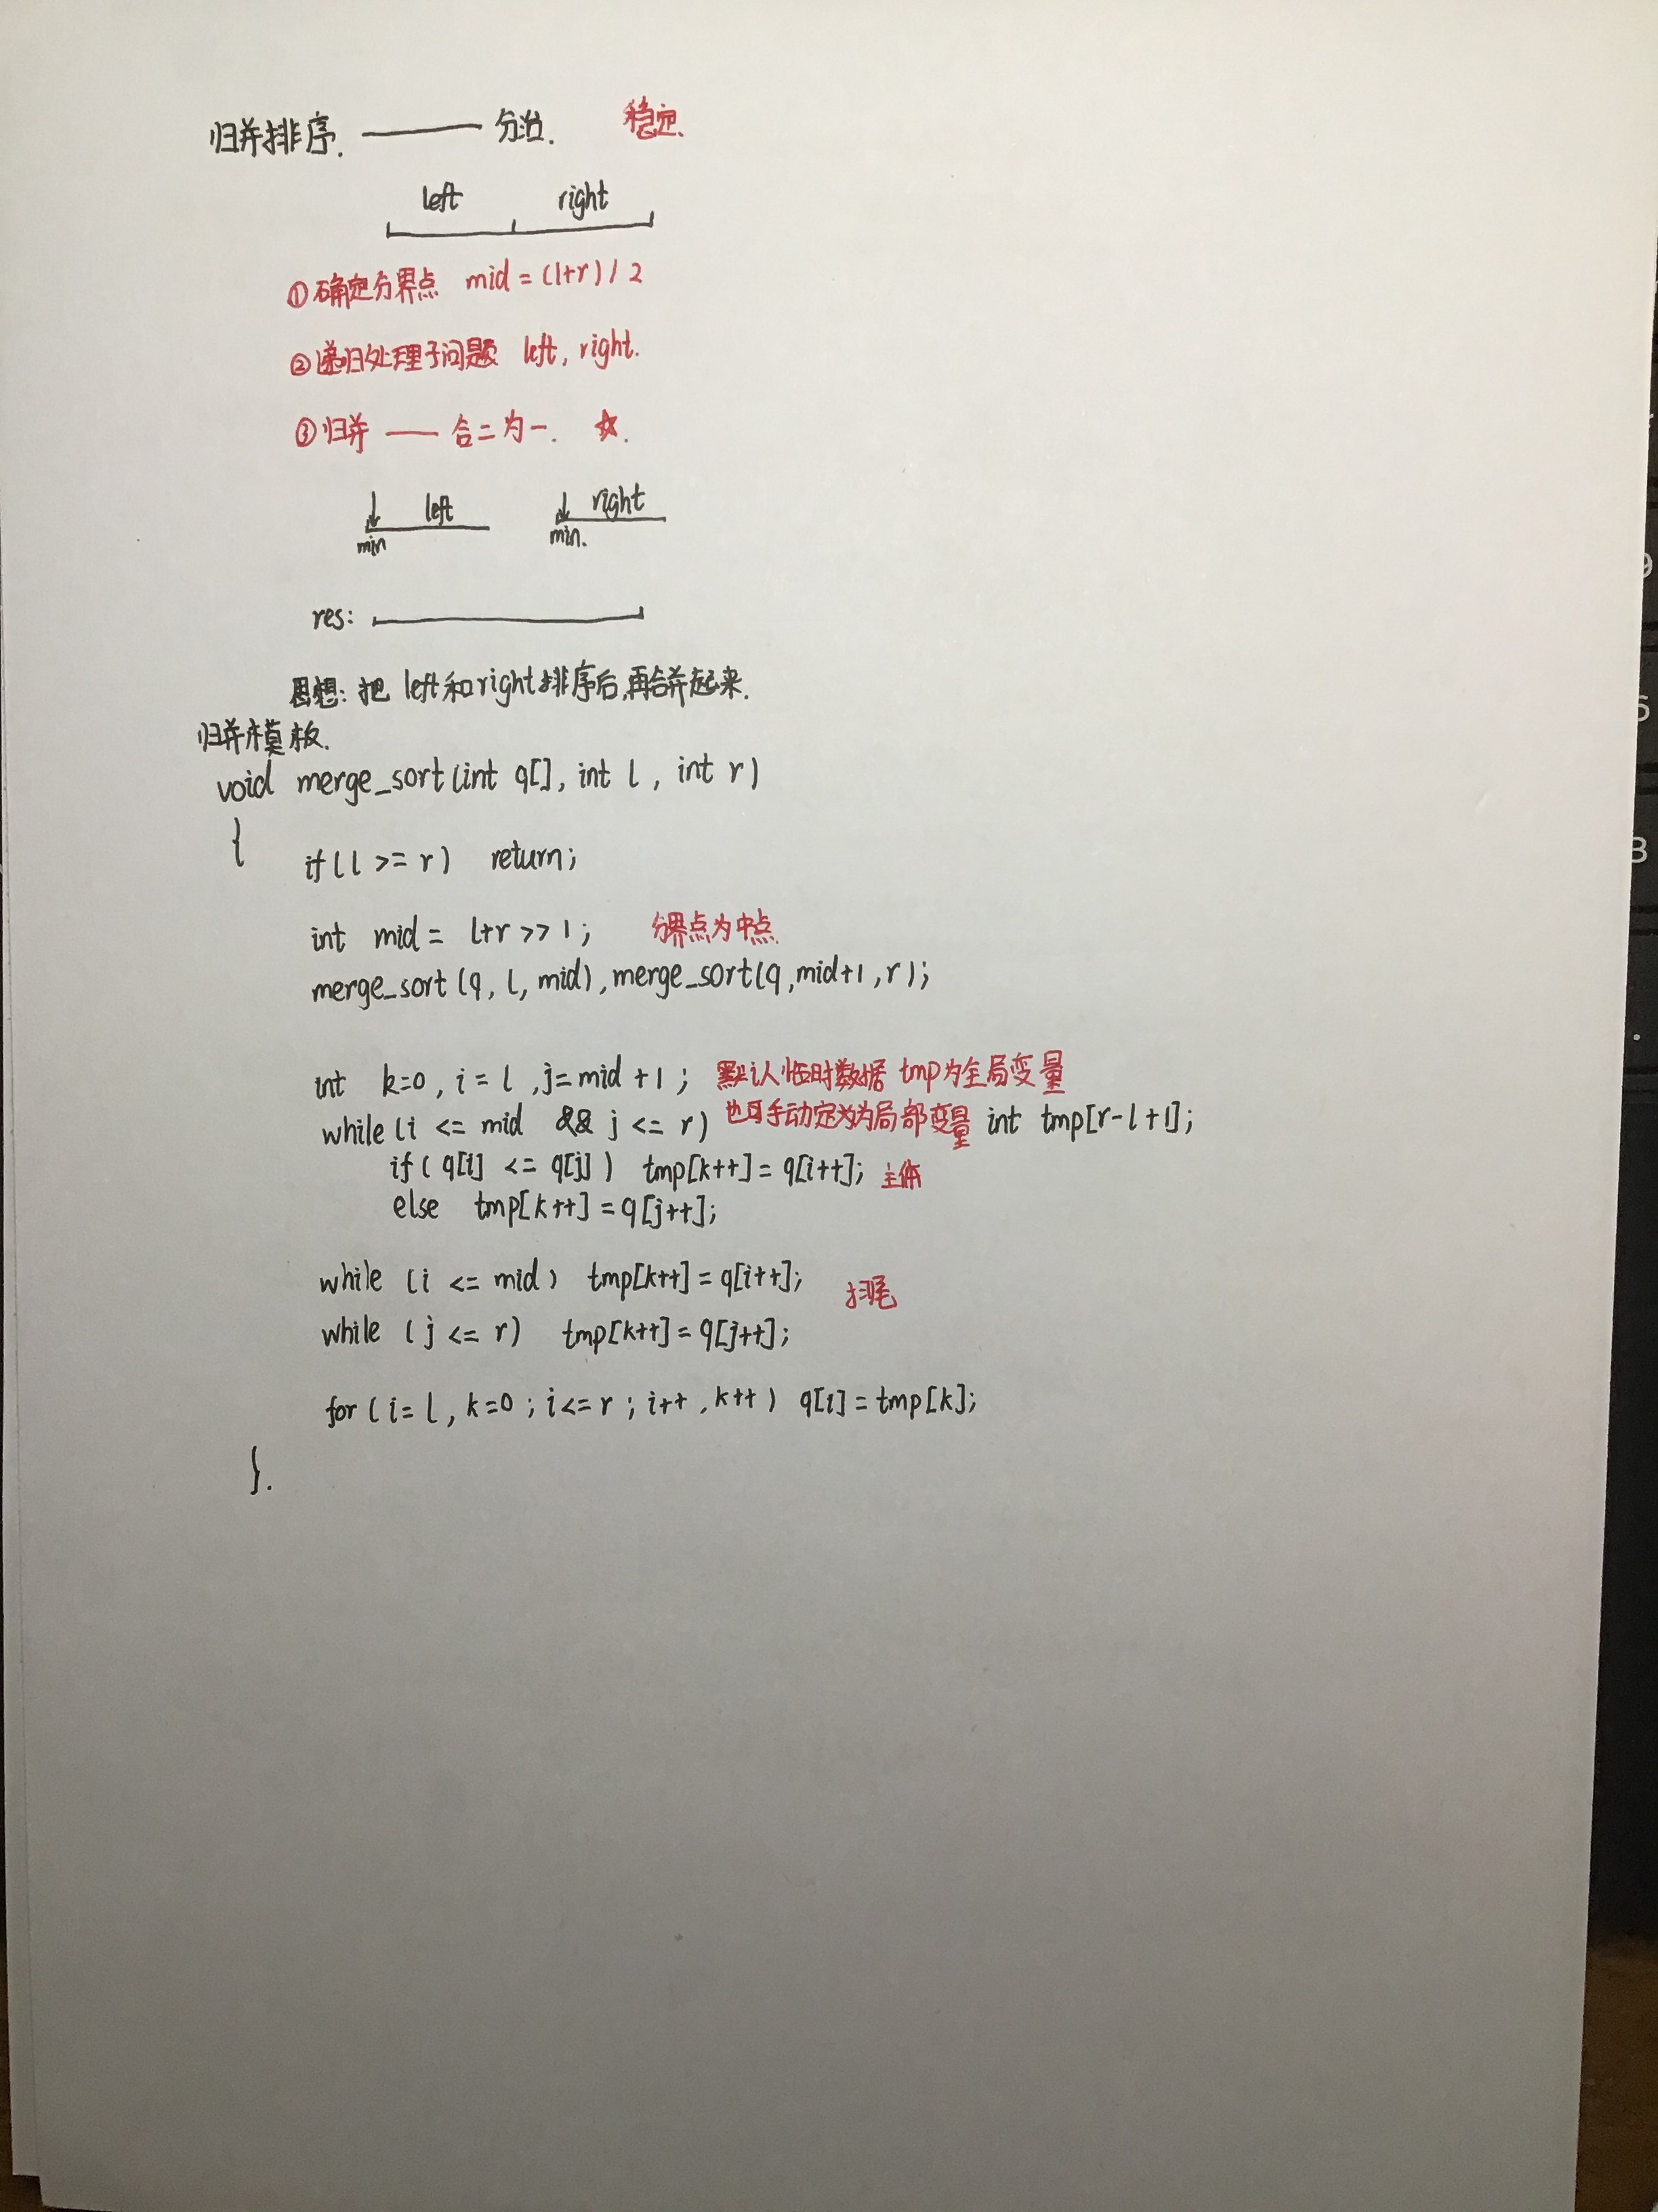 归并排序. —— 分治. 稳定.
left right
①确定分界点 mid = (l+r) / 2
②递归处理子问题 left, right.
③归并 —— 合二为一. ☆.
left right
min min.
res:
思想: 把 left和right排序后,再合并起来.
归并模板.
void merge_sort(int q[], int l, int r)
{
if(l >= r) return;
int mid = l+r >> 1; 分界点为中点
merge_sort(q, l, mid), merge_sort(q, mid+1, r);
int k=0, i = l, j= mid +1; 默认临时数据 tmp为全局变量
while(i <= mid && j <= r) 也可手动定义为局部变量 int tmp[r-l+1];
if( q[i] <= q[j] ) tmp[k++] = q[i++]; 主体
else tmp[k++] = q[j++];
while (i <= mid) tmp[k++] = q[i++]; 扫尾
while (j <= r) tmp[k++] = q[j++];
for(i= l, k=0; i<= r; i++, k++) q[i] = tmp[k];
}.
9
5
3